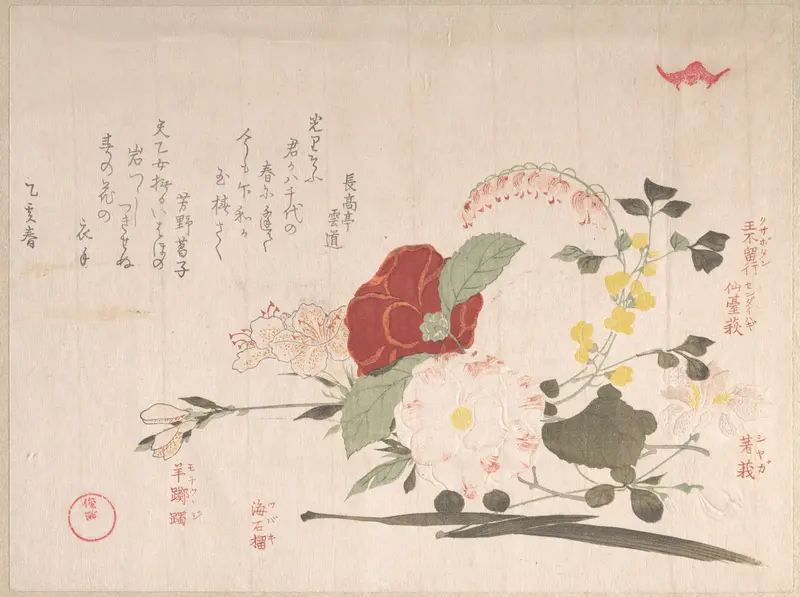 王不留行
仙臺萩
センダイハギ
著莪
シヤガ
長高亭
雲道
光りそふ
君か八千代の
春に逢て
今も卞和か
玉椿さく
芳野菖子
天乙女撫るいはほの
岩つゝしつきせぬ
春の花の
衣手
乙亥春
海石榴
ツバキ
羊躑躅
モチツヽジ
俊満